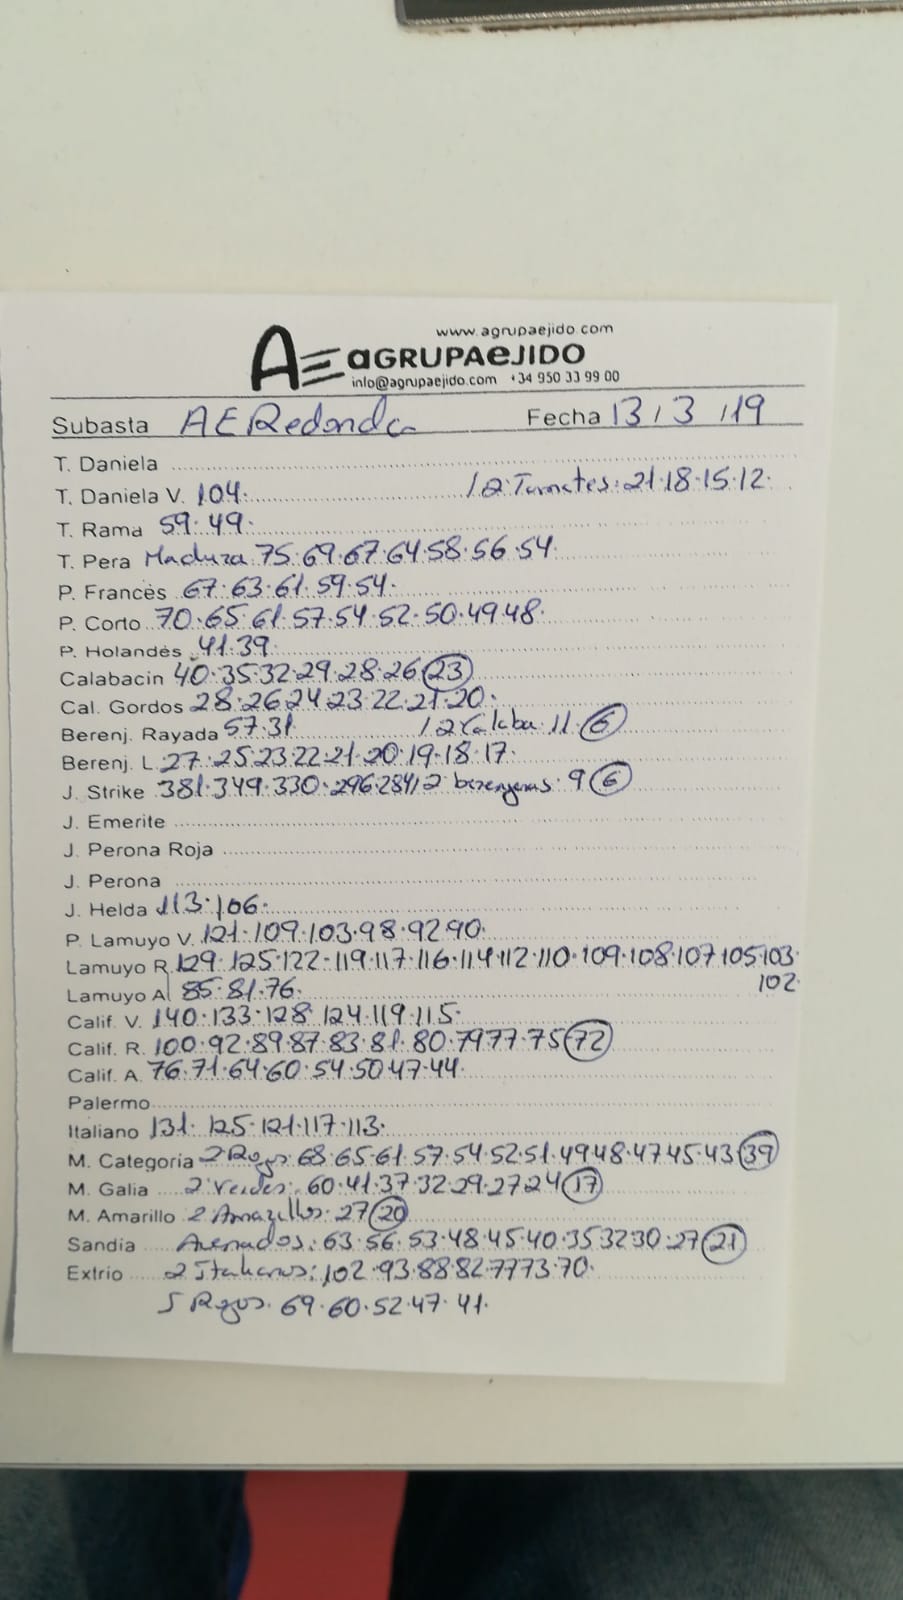 www.agrupaejido.com
AE aGRUPAeJIDO
info@agrupaejido.com +34 950 33 99 00
Subasta AERedonda Fecha 13/3/19
T. Daniela
T. Daniela V. 104. / 2 Tomates: 21·18·15·12·
T. Rama 59·49·
T. Pera Madura 75·69·67·64·58·56·54·
P. Francés 67·63·61·59·54·
P. Corto 70·65·61·57·54·52·50·49·48·
P. Holandés 41·39
Calabacin 40·35·32·29·28·26 23
Cal. Gordos 28·26·24·23·22·21·20·
Berenj. Rayada 57·31 / 2 Calaba 11· 6
Berenj. L. 27·25·23·22·21·20·19·18·17·
J. Strike 381·349·330·296·284/2 berenjenas 9 6
J. Emerite
J. Perona Roja
J. Perona
J. Helda 113·106·
P. Lamuyo V. 121·109·103·98·92·90·
Lamuyo R. 129·125·122·119·117·116·114·112·110·109·108·107·105·103·
102·
Lamuyo A. 85·81·76·
Calif. V. 140·133·128·124·119·115·
Calif. R. 100·92·89·87·83·81·80·79·77·75 72
Calif. A. 76·71·64·60·54·50·47·44·
Palermo
Italiano 131·125·121·117·113·
M. Categoria 2 Rojos 68·65·61·57·54·52·51·49·48·47·45·43 39
M. Galia 2 Verdes: 60·41·37·32·29·27·24 17
M. Amarillo 2 Amarillos· 27 20
Sandia Asurados: 63·56·53·48·45·40·35·32·30·27 21
Extrio 2 Italianos: 102·93·88·82·77·73·70·
5 Rojos· 69·60·52·47·41·